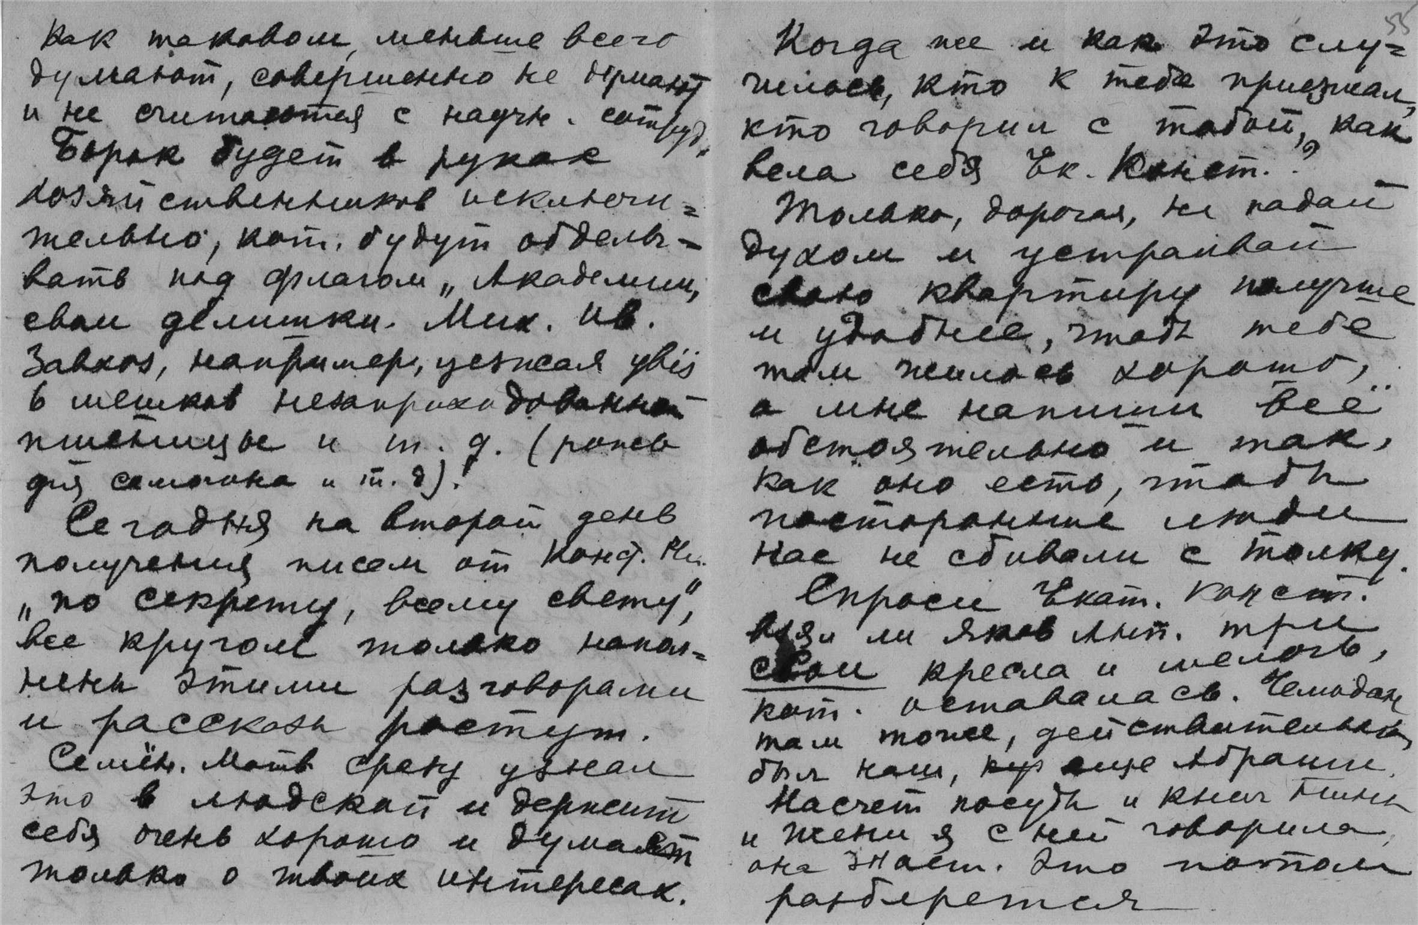 как таковом, меньше всего
думают, совершенно не
и не считаются с научн. сотруд.
Борок будет в руках
хозяйственников исключи=
тельно, кот. будут обделы-
вать под флагом „Академии„
свои делишки. Мих. Ив.
Завхоз, например, уезжая увёз
6 мешков незаприходованной
пшеницы и т. д. (рожь
для самогона и т. д).
Сегодня на второй день
получения писем от Конф.
„по секрету, всему свету”,
все кругом только напол=
нены этими разговорами
и рассказы растут.
Семён. Матв сразу узнал
это в людской и держит
себя очень хорошо и думает
только о твоих интересах.
55
Когда же и как это слу=
чилось, кто к тебе приезжал,
кто говорил с тобой, как
вела себя Ек. Конст.?
Только, дорогая, не падай
духом и устраивай
свою квартиру получше
и удобнее, чтобы тебе
там жилось хорошо,
а мне напиши всё
обстоятельно и так,
как оно есть, чтобы
посторонние люди
нас не сбивали с толку.
Спроси Екат. Конст.
взял ли Яков Ант. три
свои кресла и мелочь,
кот. оставалась. Чемодан
там тоже, действительно
был наш, еще Абраши.
Насчет посуды и книг
и Жени я с ней говорила,
она знает. Это потом
разберется